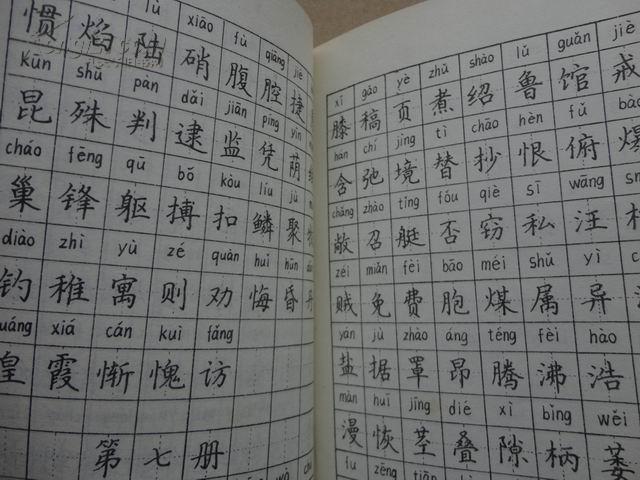 lù xiāo fù qiāng jié
惯 焰 陆 硝 腹 腔 捷
kūn shū pàn dǎi jiān píng yīn
昆 殊 判 逮 监 凭 荫
cháo fēng qū bó kòu lín jù
巢 锋 躯 搏 扣 鳞 聚
diào zhì yù zé quàn huǐ hūn
钓 稚 寓 则 劝 悔 昏
xiá cán kuì fǎng
皇 霞 惭 愧 访
第 七 册
xī gǎo yè zhǔ shào lǔ guǎn jiè
膝 稿 页 煮 绍 鲁 馆 戒
hán chí jìng tì chāo hèn fǔ
含 弛 境 替 抄 恨 俯
chǎng zhào tǐng fǒu qiè sī wāng
敞 召 艇 否 窃 私 汪
zéi miǎn fèi bāo méi shǔ yì
贼 免 费 胞 煤 属 异
yán jù zhào áng téng fèi hào
盐 据 罩 昂 腾 沸 浩
màn huī jīng dié xì bǐng wěi
漫 恢 茎 叠 隙 柄 萎
fu zēng tiān